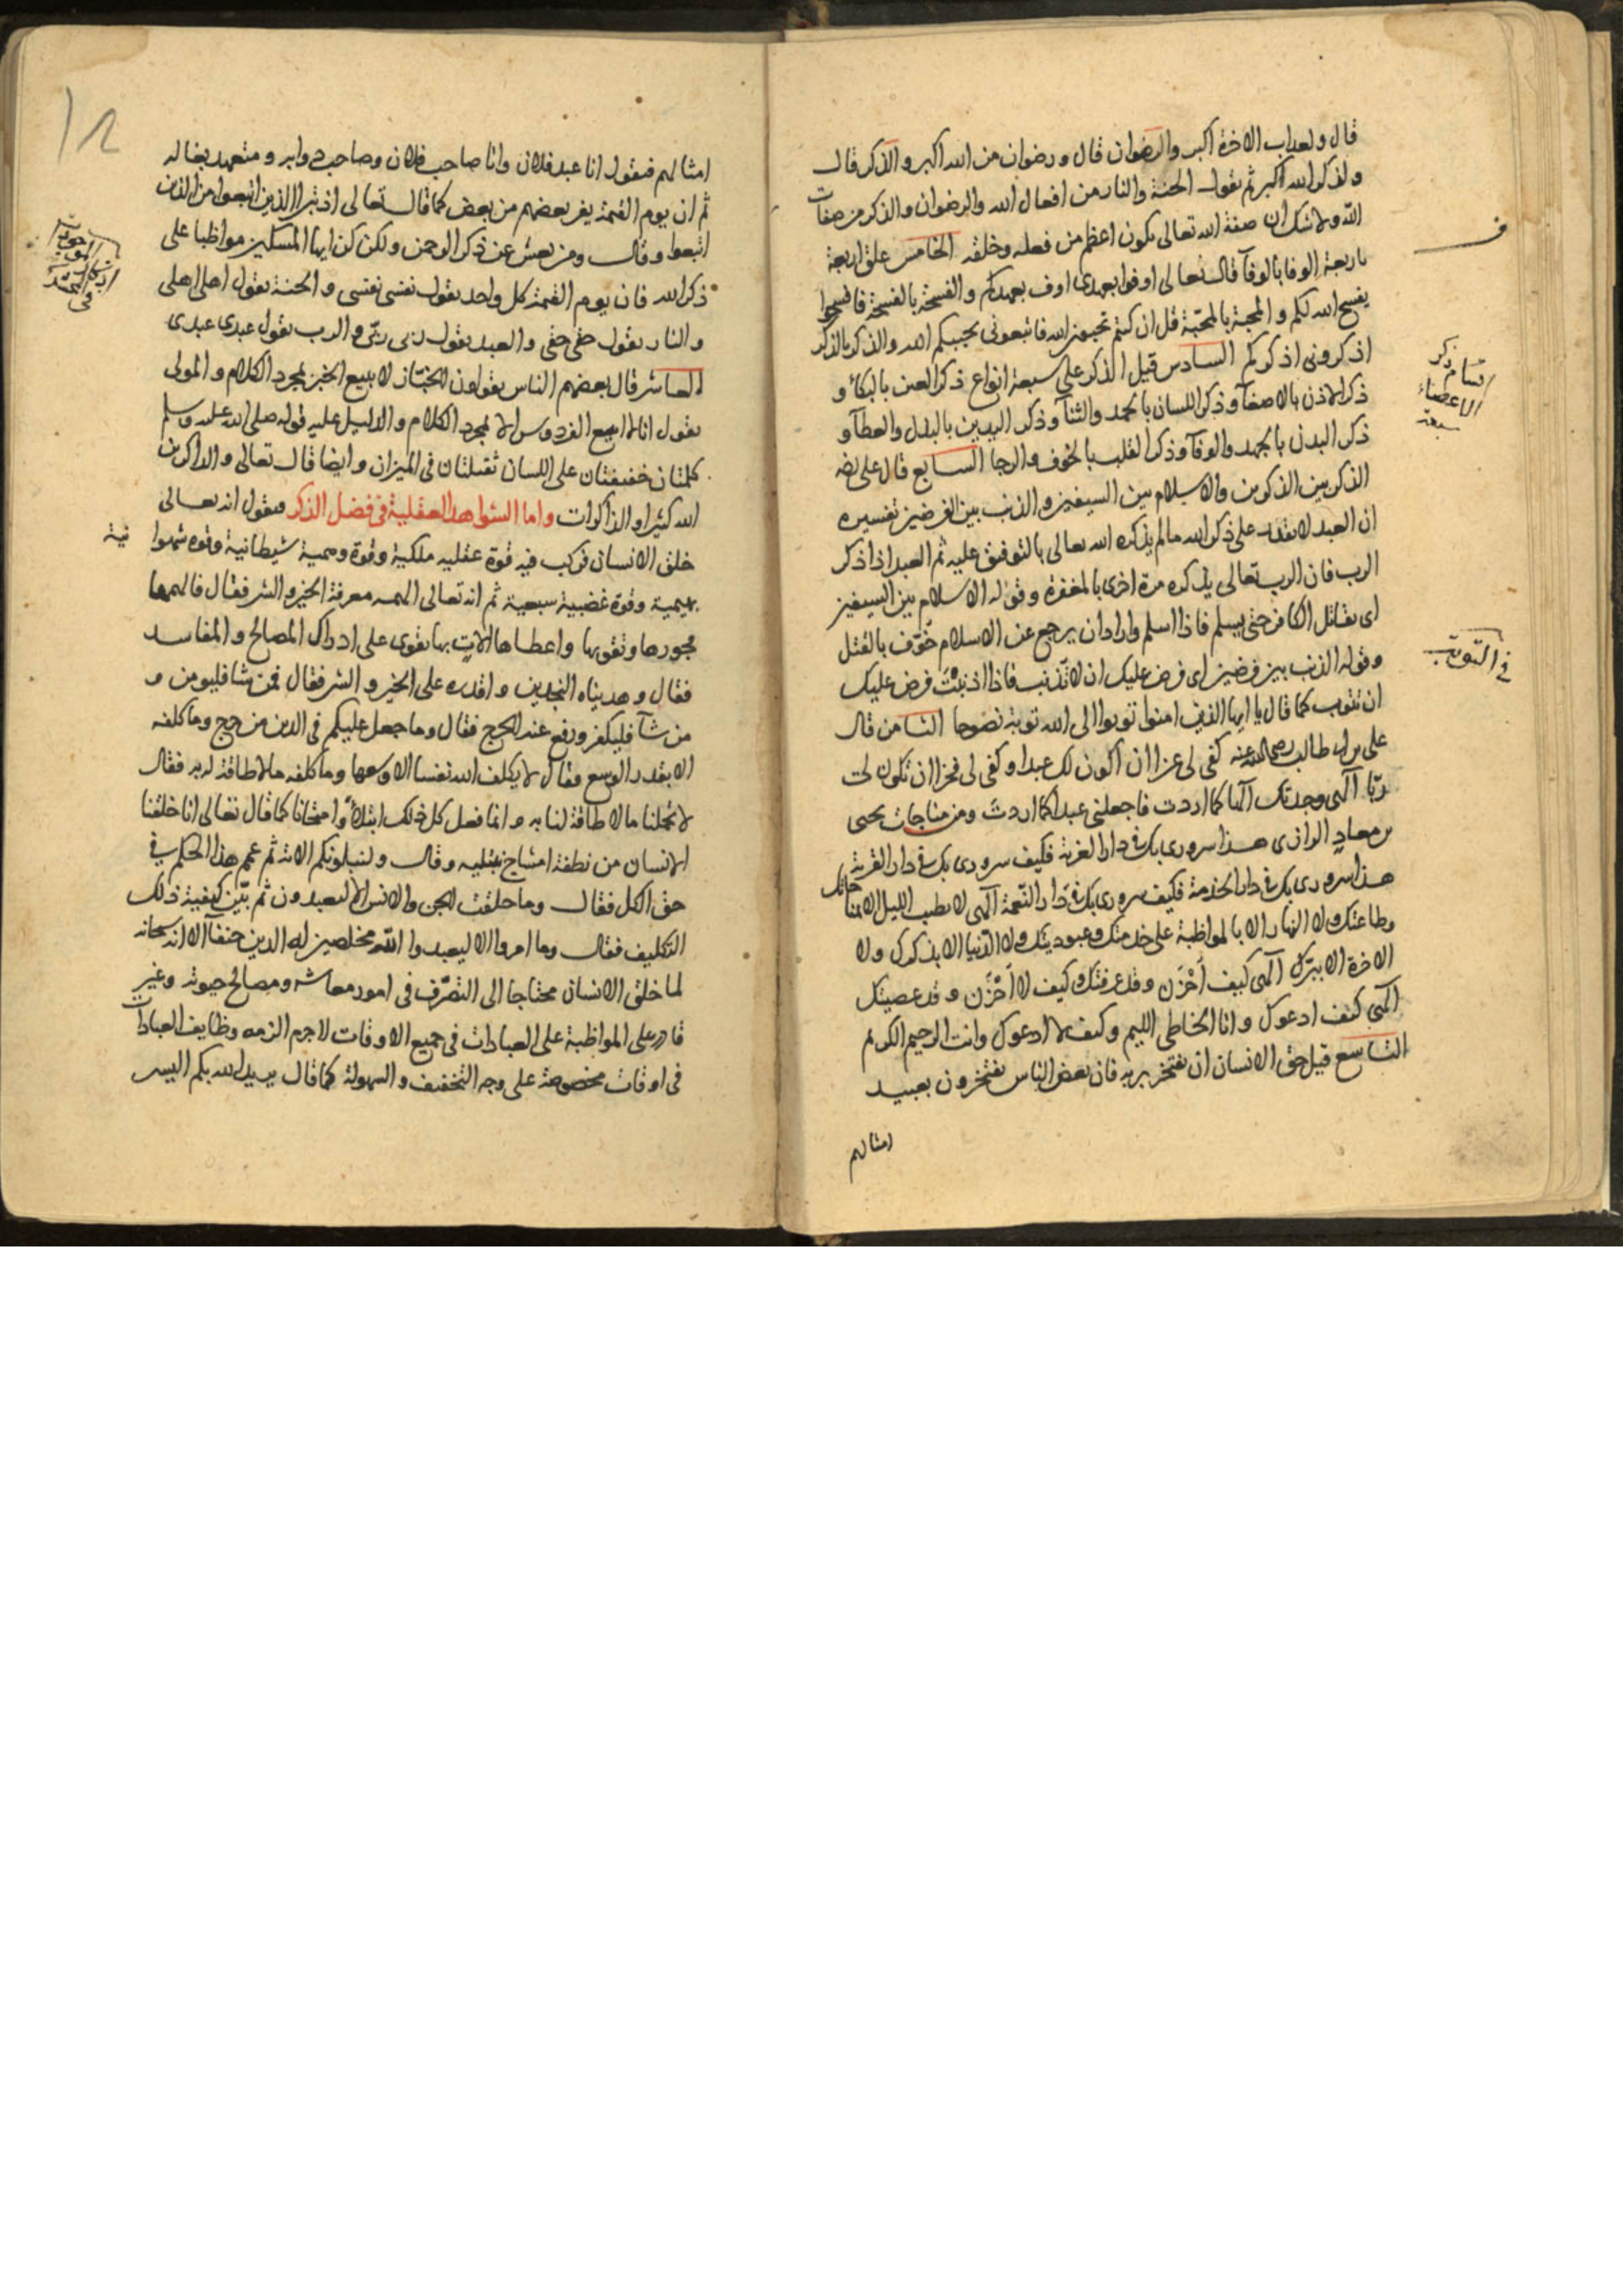 قال ولعذاب الاخرة اكبر والرضوان قال ورضوان من الله اكبر والذكر قال
ولذكر الله اكبر ثم نقول الجنة والنار من افعال الله والرضوان والذكر من صفات
الله ولا شك ان صفة الله تعالى يكون اعظم من فعله وخلقه الخامس علق اربعة
باربعة الوفا بالوفآ قال تعالى اوفوا بعهدى اوف بعهدكم والفسحة بالفسحة فافسحوا
يفسح الله لكم والمحبة بالمحبّة قل ان كنتم تحبون الله فاتبعونى يحببكم الله والذكر بالذكر
اذكرونى اذكركم السادس قيل الذكر على سبعة انواع ذكر العين بالبكآء و
ذكر الاذن بالاصغآ وذكر اللسان بالحمد والثنآ وذكر اليدين بالبذل والعطآ و
ذكر البدن بالجهد والوفآ وذكر القلب بالخوف والرجا السابع قال على رضه
الذكر بين الذكرين والاسلام بين السيفين والذنب بين الفرضين تفسيره
ان العبد لا يقدر على ذكر الله ما لم يذكره الله تعالى بالتوفيق عليه ثم العبد اذا ذكر
الرب فان الرب تعالى يذكره مرة اخرى بالمغفرة وقوله الاسلام بين السيفين
اى يقاتل الكافر حتى يسلم فاذا اسلم واراد ان يرجع عن الاسلام خوّف بالقتل
وقوله الذنب بين فرضين اى فرض عليك ان لا تذنب فاذا اذنبت فرض عليك
ان تتوب كما قال يا ايها الذين امنوا توبوا الى الله توبة نصوحا الثامن قال
على بن ابى طالب رضى الله عنه كفى لى عزا ان اكون لك عبدا وكفى لى فخرا ان تكون لى
ربّا الهى وجدتك الها كما اردت فاجعلنى عبدا كما اردت ومن مناجات يحيى
بن معاد الرازى هذا سرورى بك فى دار الغربة فكيف سرورى بك فى دار القربة
هذا سرورى بك فى دار الخدمة فكيف سرورى بك فى دار النّعمة الهى لا يطيب الليل الا بمناجاتك
وطاعتك ولا النهار الا بالمواظبة على خدمتك وعبوديتك ولا الدّنيا الا بذكرك ولا
الاخرة الا ببرّك الهى كيف اَحْزَن وقد عرفتك وكيف لا اَحْزَن وقد عصيتك
الهى كيف ادعوك وانا الخاطى اللئيم وكيف لا ادعوك وانت الرحيم الكريم
التاسع قيل حق الانسان ان يفتخر بربه فان بعض الناس يفتخرون بعبيد
امثالهم
ذكر
اقسام
الاعضاء
سبعة
فى التوبة
امثالهم فيقول انا عبد فلان وانا صاحب فلان وصاحب دوابه ومتعهد بغاله
ثم ان يوم القيمة يفر بعضهم من بعض كما قال تعالى اذ تبرا الذين اتبعوا من الذين
اتبعوا وقال ومن يعش عن ذكر الرحمن ولكن كن ايها المسكين مواظبا على
ذكر الله فان يوم القيمة كل واحد يقول نفسى نفسى والجنة يقول اهلى اهلى
والنار يقول حقى حقى والعبد يقول ربى ربّى والرب يقول عبدى عبدى
العاشر قال بعضهم الناس يقولون الخبّاز لا يبيع الخبز بمجرد الكلام والمولى
يقول انا لا ابيع الفردوس الا بمجرد الكلام والدليل عليه قوله صلى الله عليه وسلم
كلمتان خفيفتان على اللسان ثقيلتان فى الميزان وايضا قال تعالى والذاكرين
الله كثيرا والذاكرات واما الشواهد العقلية فى فضل الذكر فيقول انه تعالى
خلق الانسان فركب فيه قوة عقليه ملكية وقوة وهمية شيطانية وقوه شهوانية
بهيمية وقوة غضبية سبعية ثم انه تعالى الهمه معرفة الخير والشر فقال فالهمها
فجورها وتقويها واعطاها الات بها يقوى على ادراك المصالح والمفاسد
فقال وهديناه النجدين واقدره على الخير والشر فقال فمن شا فليومن و
من شآ فليكفر ورفع عنه الحرج فقال وما جعل عليكم فى الدين من حرج وما كلفه
الا بقدر الوسع فقال لا يكلف الله نفسا الا وسعها وما كلفه ما لا طاقة له به فقال
لا تحملنا ما لا طاقة لنا به وانما فعل كل ذلك ابتلآءً وامتحانا كما قال تعالى انا خلقنا
الانسان من نطفة امشاج نبتليه وقال ولنبلونكم الاية ثم عمم هذا الحكم فى
حق الكل فقال وما خلقت الجن والانس الا ليعبدون ثم بيّن كيفية ذلك
التكليف فقال وما امروا الا ليعبدوا الله مخلصين له الدين حنفآ الا انه سبحانه
لما خلق الانسان محتاجا الى التصرّف فى امور معاشه ومصالح حيوته وغير
قادر على المواظبة على العبادات فى جميع الاوقات لا جرم الزمه وظايف العبادات
فى اوقات مخصوصة على وجه التخفيف والسهولة كما قال يريد الله بكم اليسر